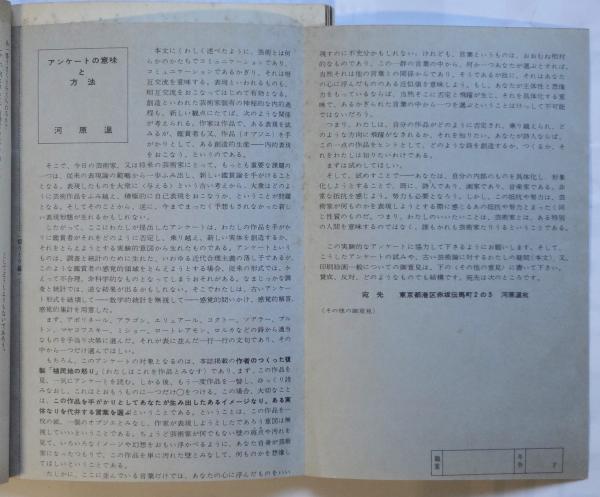 アンケートの意味
と
方法
河原温
本文にくわしく述べたように、芸術とは何
らかのかたちでコミュニケーションであり、
コミュニケーションであるかぎり、それは相
互交流を意味する。表現といわれるものも、
相互交流をおこなってはじめて有効となる。
創造といわれた芸術家個有の神秘的な内的過
程も、新しい観点にたてば、次のような関係
が考えられる。作家は作品で、ある表現を試
みるが、鑑賞者も又、作品(オブジェ)を手
がかりとして、ある創造的生産――内的表現
をおこなう、というのである。
そこで、今日の芸術家、又は将来の芸術家にとって、もっとも重要な課題の
一つは、従来の表現論の範疇から一歩ふみ出し、新しい鑑賞論を手がけること
となる。表現したものを大衆に〈与える〉という古い考えから、大衆はどのよ
うに芸術作品をふみ越え、積極的に自己表現をおこなうか、ということが問題
となる。そしてそのことから、逆に、今までまったく予想もされなかった新し
い表現形態が生れるかもしれない。
したがって、ここにわたしが提出したアンケートは、わたしの作品を手がか
りに鑑賞者がそれをどのように否定し、乗り越え、新しい実体を創造するか、
それをとらえようとする実験的意図から生れたものである。アンケートという
ものは、調査と統計のために生れた、いわゆる近代合理主義の落し子であるが、
このような鑑賞者の感覚的領域をとらえようとする場合、従来の形式では、か
えって不合理、非科学的なものとなってしまうおそれがある。なまじっかな調
査と統計では、逆な結果が出るかもしれない。そこでわたしは、古いアンケー
ト形式を破壊して――数学的統計を無視して――感覚的問いかけ、感覚的解答、
感覚的集計を用意した。
まず、アポリネール、アラゴン、エリュアール、コクトー、ツアラー、ブル
トン、マヤコフスキー、ミショー、ロートレアモン、ロルカなどの詩から適当
なものを手当り次第に選んだ。それが表に並んだ一行一行の文句であり、その
中から一つだけ選んでほしい。
もちろん、このアンケートの対象となるのは、本誌掲載の作者のつくった復
製「植民地の怒り」(わたしはこれを作品とみなす)であり、まず、この作品を
見、一気にアンケートを読む。しかる後、もう一度作品を一瞥し、ゆっくり読
みなおし、これはとおもうものに一つだけ〇をつける。この場合、大切なこと
は、この作品を手がかりとしてあなたが生み出したあるイメージなり、ある実
体なりを代弁する言葉を選ぶということである。ということは、この作品を一
枚の紙、一個のオブジェとみなし、作家が表現しようとしたであろう意図は無
視していいということである。ちょうど芸術家が何でもない壁の斑点や汚れを
見て、いろいろなイメージや幻想をおもい浮かべるように、あなた自身が芸術
家になったつもりで、この作品を単に汚れた壁とみなして、何ものかを想像し
てほしいということである。
たしかに、ここに並んでいる言葉だけでは、あなたの心に浮んだものをいい
現すのに不充分かもしれない。けれども、言葉というものは、おおむね相対
的なものであり、この一群の言葉の中から、何か一つあなたが選ぶとすれば、
当然それは他の言葉との関係からであり、そうであるが故に、それはあなた
の心に浮んだもののある近似値を意味しよう。もし、あなたが主体性と想像
力をもっているならば、当然そこに否定と飛躍が生じ、それを具体化する意
味で、あるかぎられた言葉の中から一つを選ぶということはけっして不可能
ではないだろう。
つまり、わたしは、自分の作品がどのように否定され、乗り越えられ、ど
のような方向に飛躍がなされるか、それを知りたい。あなたが詩人ならば、
この一点の作品をヒントとして、どのような詩を創造するか、つくるか、そ
れをわたしは知りたいわけである。
まずは試してほしい。
そして、試すことで――あなたは、自分の内部のものを具体化し、対象
化しようとすることで、既に、詩人であり、画家であり、音楽家である。非
常な抵抗を感じよう。努力も必要となろう。しかし、この抵抗や努力は、芸
術家が何ものかを表現しようとする際に感じるあの抵抗や努力とまったく同
じ性質のものだ。つまり、わたしのいいたいことは、芸術家とは、ある特別
の人間を意味するのではなく、誰もかれも芸術家たりうるということである。
この実験的なアンケートに協力して下さるようにお願いします。そして、
こうしたアンケートの試みや、古い芸術論に対するわたしの疑問(本文)、又、
印刷絵画一般についての御意見は、下の(その他の意見)に書いて下さい。
賛成、反対、どのようなものでも結構です。宛先は次のところです。
宛先 東京都港区赤坂伝馬町2の3 河原温宛
(その他の御意見)
職業
年令 才